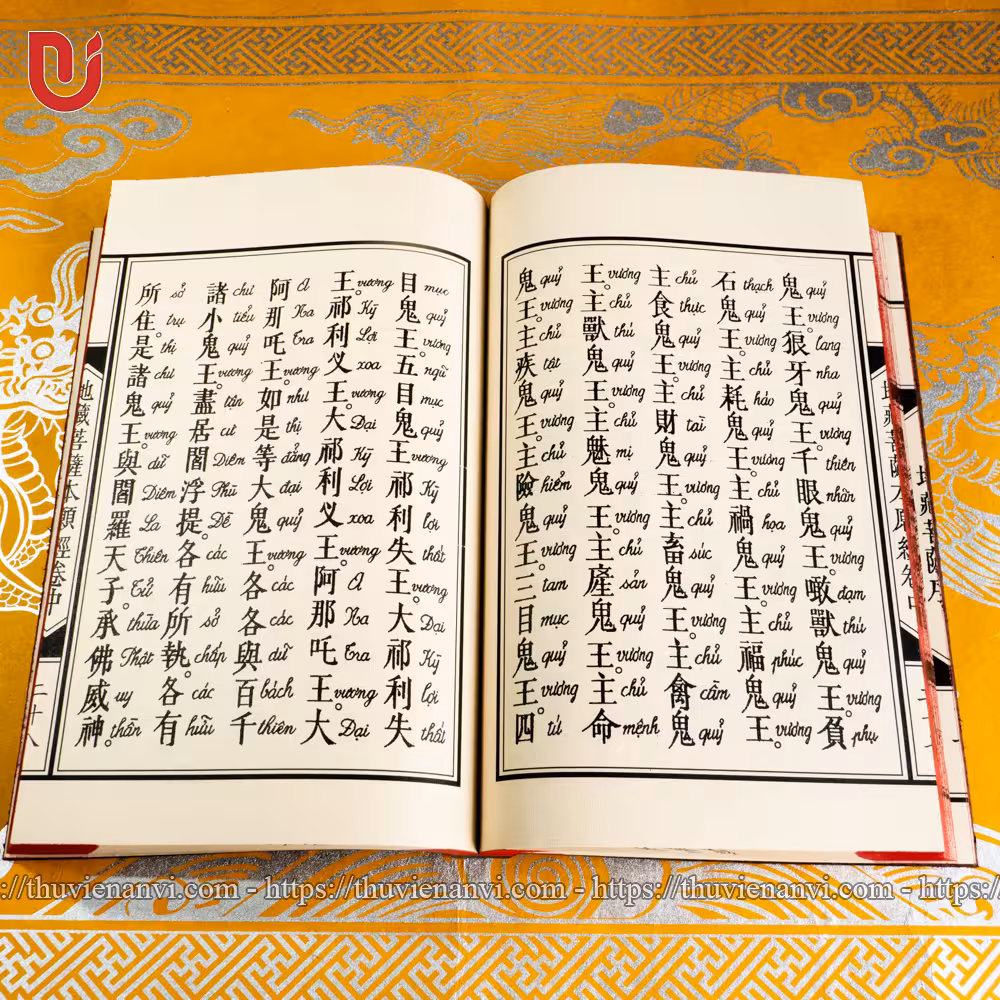 鬼 quỷ 王。 vương 狼 lang 牙 nha 鬼 quỷ 王。 vương 千 thiên 眼 nhãn 鬼 quỷ 王。 vương 噉 đạm 獸 thú 鬼 quỷ 王。 vương 負 phụ
石 thạch 鬼 quỷ 王。 vương 主 chủ 耗 háo 鬼 quỷ 王。 vương 主 chủ 禍 họa 鬼 quỷ 王。 vương 主 chủ 福 phúc 鬼 quỷ 王。 vương
主 chủ 食 thực 鬼 quỷ 王。 vương 主 chủ 財 tài 鬼 quỷ 王。 vương 主 chủ 畜 súc 鬼 quỷ 王。 vương 主 chủ 禽 cầm 鬼 quỷ
王。 vương 主 chủ 獸 thú 鬼 quỷ 王。 vương 主 chủ 魅 mị 鬼 quỷ 王。 vương 主 chủ 產 sản 鬼 quỷ 王。 vương 主 chủ 命 mệnh
鬼 quỷ 王。 vương 主 chủ 疾 tật 鬼 quỷ 王。 vương 主 chủ 險 hiểm 鬼 quỷ 王。 vương 三 tam 目 mục 鬼 quỷ 王。 vương 四 tứ
目 mục 鬼 quỷ 王。 vương 五 ngũ 目 mục 鬼 quỷ 王。 vương 祁 Kỳ 利 lợi 失 thất 王。 vương 大 Đại 祁 Kỳ 利 lợi 失 thất
王。 vương 祁 Kỳ 利 Lợi 叉 xoa 王。 vương 大 Đại 祁 Kỳ 利 Lợi 叉 xoa 王。 vương 阿 A 那 Na 吒 Tra 王。 vương 大 Đại
阿 A 那 Na 吒 Tra 王。 vương 如 như 是 thị 等 đẳng 大 đại 鬼 quỷ 王。 vương 各 các 各 các 與 dữ 百 bách 千 thiên
諸 chư 小 tiểu 鬼 quỷ 王。 vương 盡 tận 居 cư 閻 Diêm 浮 Phù 提。 Đề 各 các 有 hữu 所 sở 執。 chấp 各 các 有 hữu
所 sở 住。 trụ 是 thị 諸 chư 鬼 quỷ 王。 vương 與 dữ 閻 Diêm 羅 La 天 Thiên 子。 Tử 承 thừa 佛 Phật 威 uy 神。 thần
地藏菩薩本願經卷中
二十八
https://thuvienanvi.com - https://thuvienanvi.com - https://thuvienanvi.com